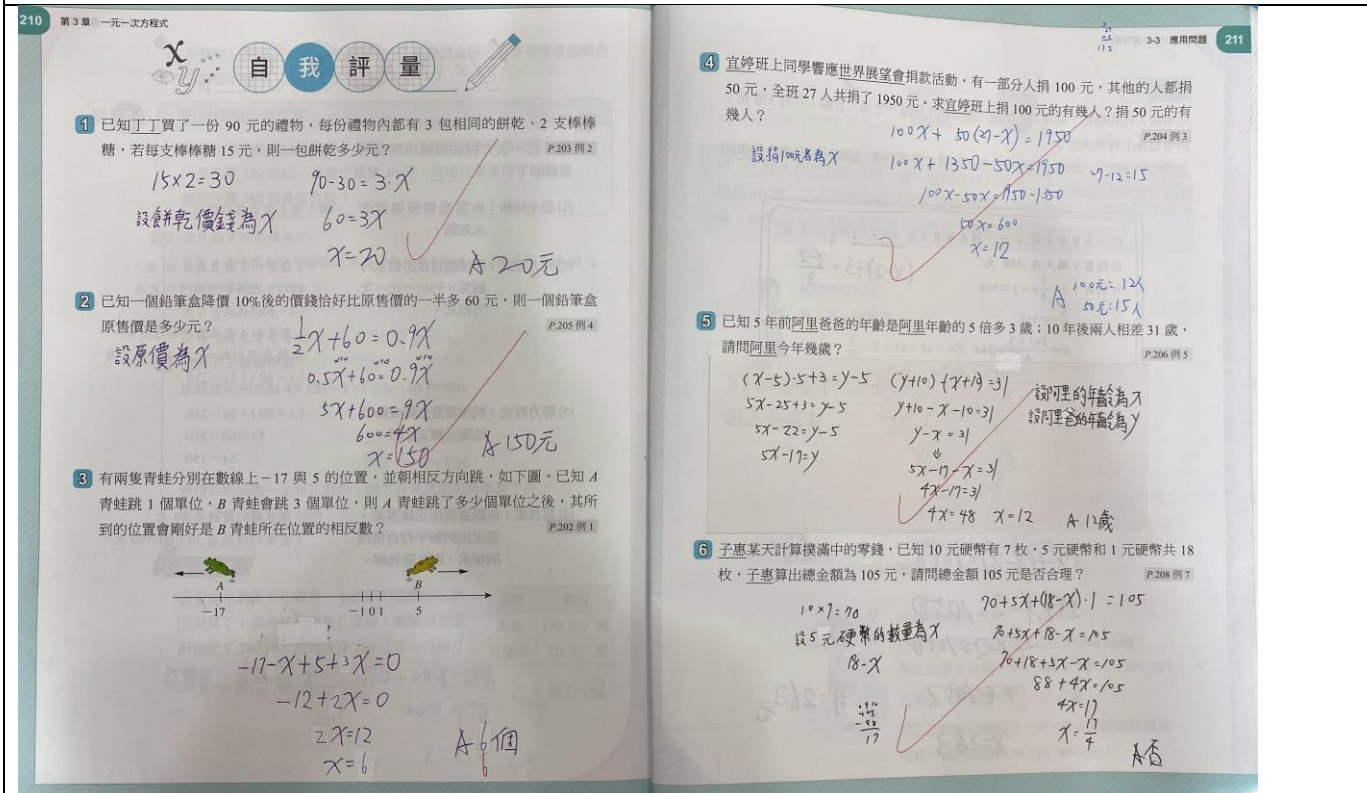 210 第3章 一元一次方程式
x y 自我評量
1 已知丁丁買了一份 90 元的禮物，每份禮物內都有 3 包相同的餅乾、2 支棒棒
糖，若每支棒棒糖 15 元，則一包餅乾多少元？ P.203 例 2
15×2=30 90-30=3·x
設餅乾價錢為x 60=3x
x=20 A 20元
2 已知一個鉛筆盒降價 10%後的價錢恰好比原售價的一半多 60 元，則一個鉛筆盒
原售價是多少元？ P.205 例 4
設原價為x
1/2x+60=0.9x
×10 ×10 ×10
0.5x+60=0.9x
5x+600=9x
600=4x
x=150 A 150元
3 有兩隻青蛙分別在數線上－17 與 5 的位置，並朝相反方向跳，如下圖。已知 A
青蛙跳 1 個單位，B 青蛙會跳 3 個單位，則 A 青蛙跳了多少個單位之後，其所
到的位置會剛好是 B 青蛙所在位置的相反數？ P.202 例 1
A B
－17 －1 0 1 5
-17-x+5+3x=0
-12+2x=0
2x=12
x=6 A 6個
6
3-3 應用問題 211
4 宜婷班上同學響應世界展望會捐款活動，有一部分人捐 100 元，其他的人都捐
50 元，全班 27 人共捐了 1950 元。求宜婷班上捐 100 元的有幾人？捐 50 元的有
幾人？ P.204 例 3
100x+50(27-x)=1950
設捐100元者為x 100x+1350-50x=1950
100x-50x=1950-1350
50x=600
x=12
A 100元：12人
50元：15人
5 已知 5 年前阿里爸爸的年齡是阿里年齡的 5 倍多 3 歲；10 年後兩人相差 31 歲，
請問阿里今年幾歲？ P.206 例 5
(x-5)·5+3=y-5 (y+10)-(x+10)=31
設阿里的年齡為x
5x-25+3=y-5 y+10-x-10=31
設阿里爸的年齡為y
5x-22=y-5 y-x=31
5x-17=y
5x-17-x=31
4x-17=31
4x=48 x=12 A 12歲
6 子惠某天計算撲滿中的零錢，已知 10 元硬幣有 7 枚，5 元硬幣和 1 元硬幣共 18
枚，子惠算出總金額為 105 元，請問總金額 105 元是否合理？ P.208 例 7
10×7=70 70+5x+(18-x)·1=105
設5元硬幣的數量為x 70+5x+18-x=105
18-x 70+18+5x-x=105
88+4x=105
4x=17
105
-88
17
x=17/4
A 否